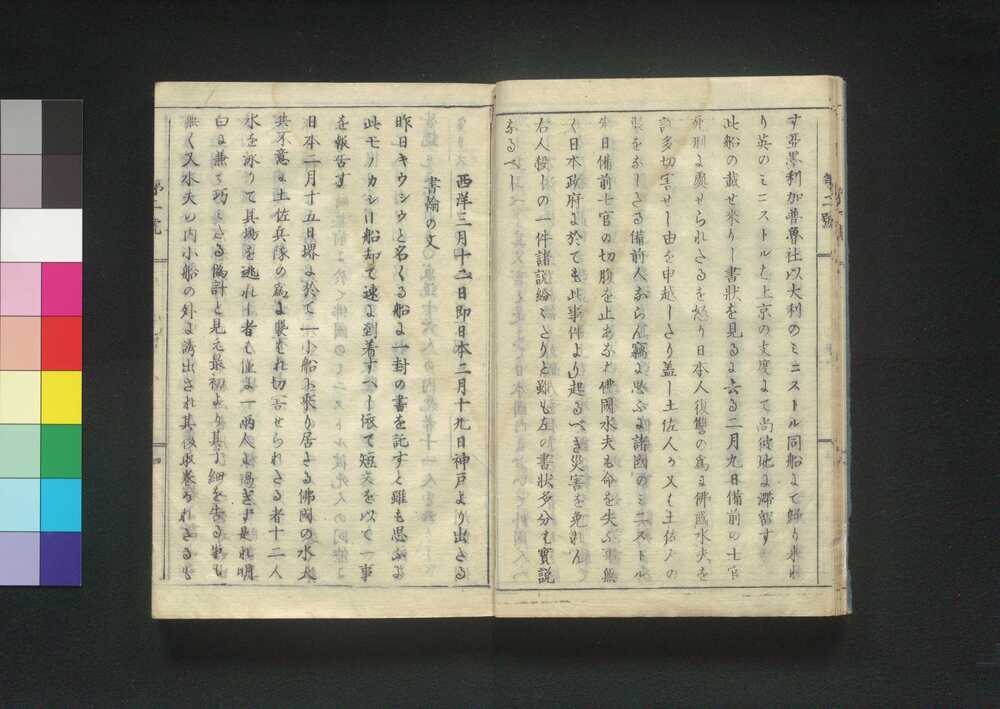 す亞墨利加普魯社以太利のミニストル同船よて歸り來れ
り英のミニストルも上京の支度よて尚彼地よ滞留す
此船の載せ來りし書狀を見るよ去る二月九日備前の士官
死刑よ處せられたるを怒り日本人復讐の爲よ佛國水夫を
許多切害せし由を申越したり蓋し土佐人か又も土佐人の
裝をなしたる備前人ならん竊よ思ふよ諸國のミニストル
先日備前士官の切腹を止めなバ佛國水夫も命を失ふ事無
く日本政府よ於ても此事件より起るべき災害を免れん
右人殺しの一件諸說紛々たりと雖も左の書狀多分も實說
なるべし
西洋三月十二日即日本二月十九日神戸より出さる
書翰の文
昨日キウシウと名くる船よ一封の書を託すと雖も思ふよ
此モノカシ號船却て速よ到着すべし依て短文を以て一事
を報告す
日本二月十五日堺よ於て一小船よ乘り居たる佛國の水夫
共不意よ土佐兵隊の爲よ襲をれ切害せられたる者十二人
水を泳りて其場を逃れし者も僅よ一兩人よ過ぎず是れ明
白よ兼て巧みたる偽計と見え最初より其子細を告る事も
無く又水夫の內小船の外よ誘出され其後取巻かれたるも
第二號
四